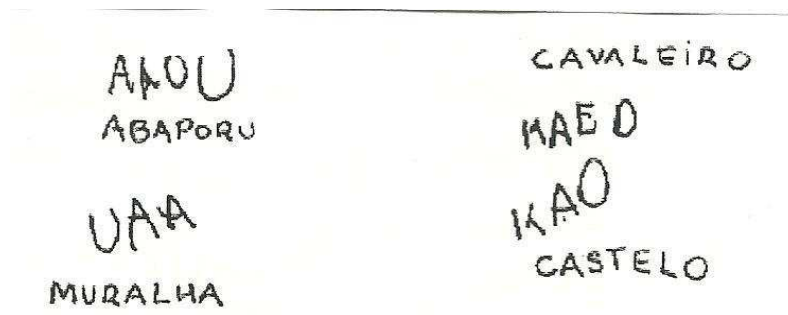 AAOU
ABAPORU
UAA
MURALHA
CAVALEIRO
KAEO
KAO
CASTELO